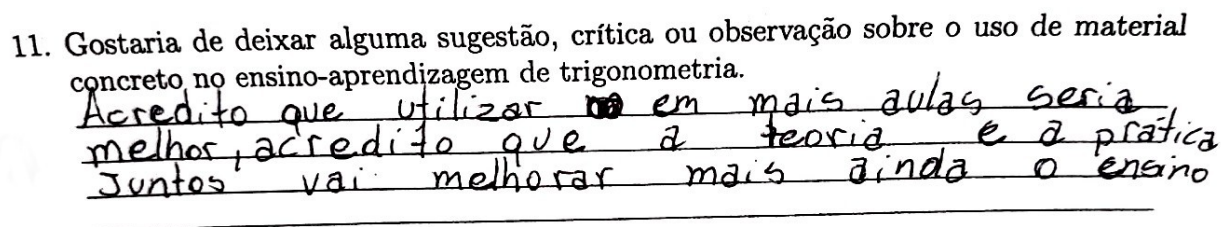 11. Gostaria de deixar alguma sugestão, crítica ou observação sobre o uso de material
concreto no ensino-aprendizagem de trigonometria.
Acredito que utilizar em mais aulas seria
melhor, acredito que a teoria e a prática
Juntos vai melhorar mais ainda o ensino